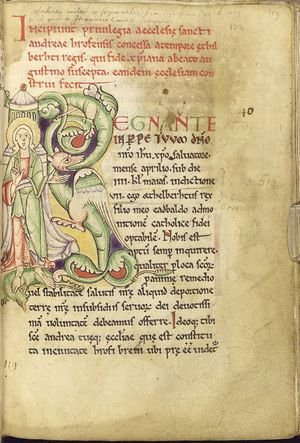 Incipiunt privilegia aecclesię sancti
andreae hrofensis concessa a tempore ethil
berhti regis. qui fide xp̄iana a beato au
gustino suscepta. eandem ecclesiam con
strui fecit.
REGNANTE
IN PERPETUUM DÑO
nr̄o ihū xp̄o salvatore.
mense aprilio. sub die
iiii. kl̄ maias. indictione
vii. ego ethelberhtus rex
filio meo eadbaldo admo
nitionem catholice fidei
optabilem. Nobis est
aptū semp̄ inquirere.
qualiter p̄ loca sc̄or
p̄ animę remedio
vel stabilitate salutis nr̄e aliquid de portione
terre nr̄e in subsidiis servor dei devotissi
mam voluntatē debeamus offerre. Ideoq; tibi
sc̄e andrea tueq; ecclesię que est constitu
ta in civitate hrofi brevi ubi pręesse videt̄
119
40